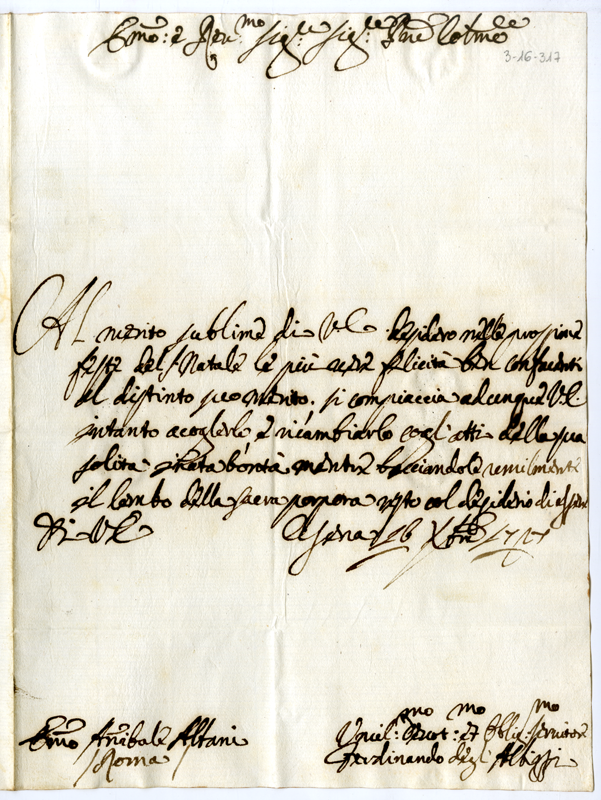 Emo: e Reu.mo Sig.re Sig.re Pne Colmo
3-16-317
Al merito sublime di V.E. desidero nelle prossime
feste del S. Natale le più vere felicità ben confacenti
al distinto suo merito. si compiaccia adunque V.E.
intanto acoglerle e ricambiarle cogl'atti della sua
solita bontà mentre bacciandole umilmente
il lembo della sacra porpora resto col desiderio di essere
Di V.E. Cesena 16 Xbre 1717
Emo Annibale Albani
Roma
Vmil.mo Deuot.mo et Oblig.mo seruitore
Ferdinando degli Albizzi